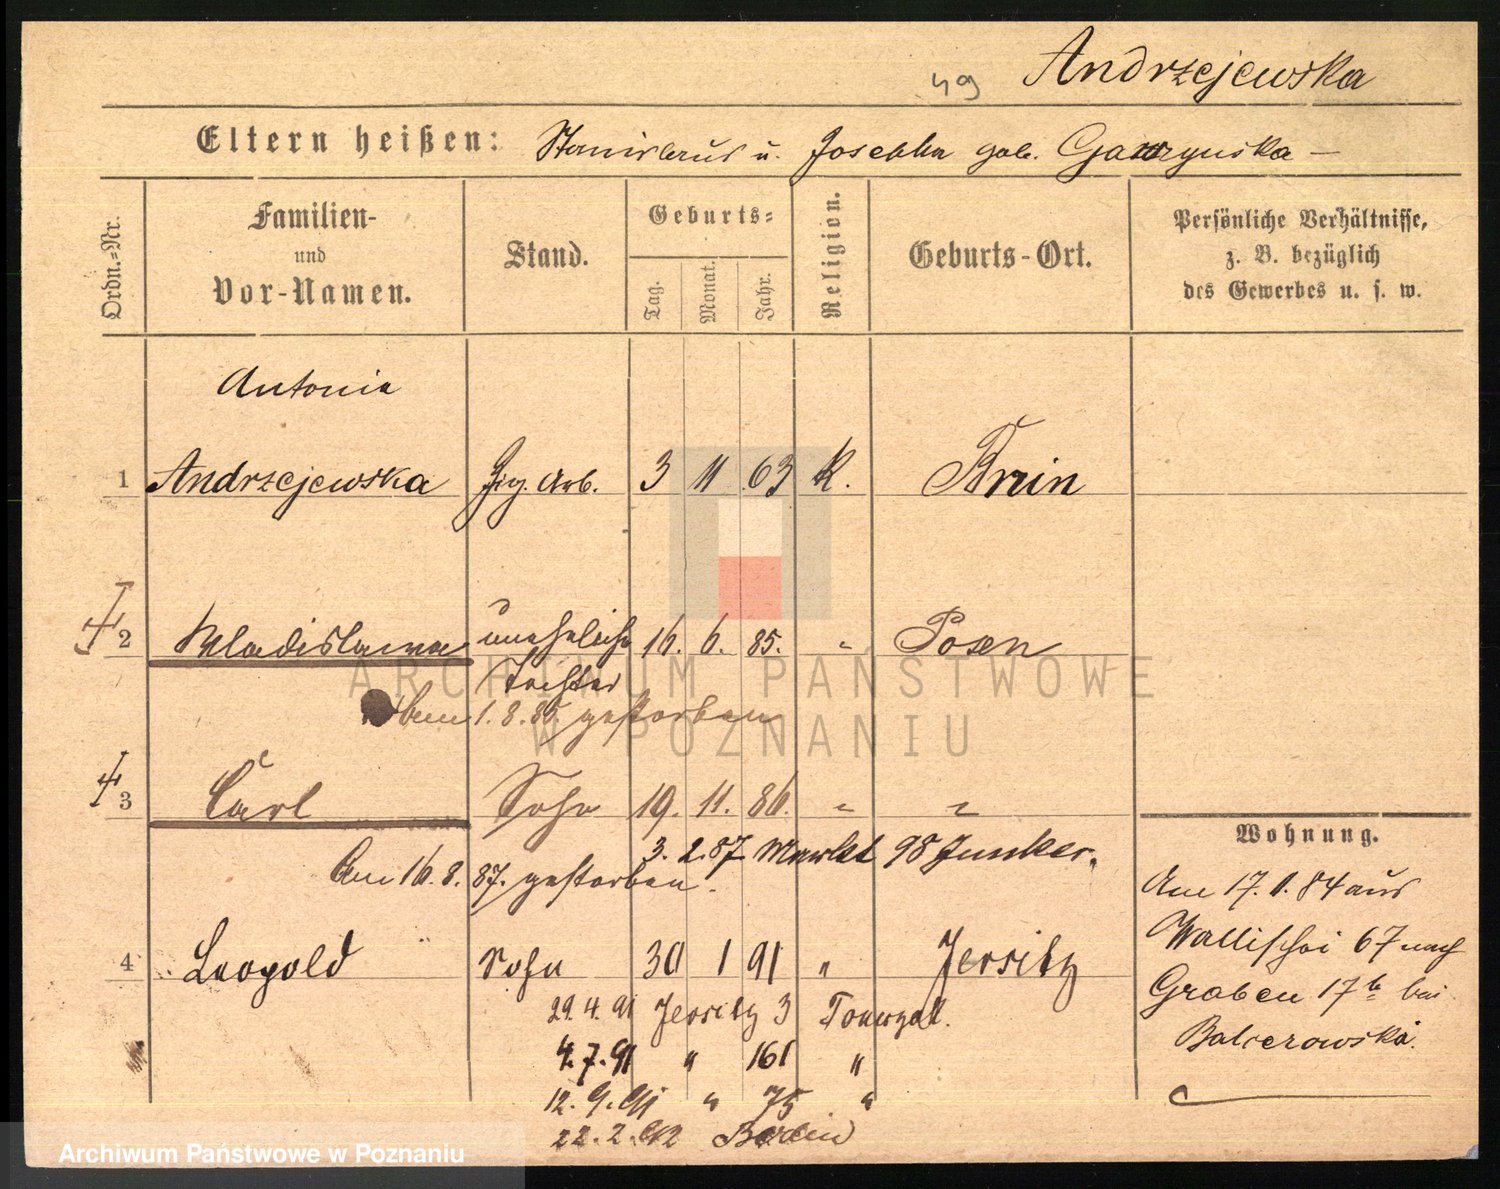 49 Andrzejewska
Eltern heißen: Stanislaus u. Josepha geb.
Ordn.-Nr.
Familien-
und
Vor-Namen.
Stand.
Geburts-
Tag.
Monat.
Jahr.
Religion.
Geburts-Ort.
Persönliche Verhältnisse,
z. B. bezüglich
des Gewerbes u. s. w.
Antonie
1 Andrzejewska Arb. 3 11 63 K. Brin
2 Wladislawa uneheliche 16. 6. 85. " Posen
Tochter
1. 8. 85. gestorben
3 Carl Sohn 19. 11. 86. " "
3. 2. 87 Markt 98 Junker.
Am 16. 8. 87. gestorben.
4 Leopold Sohn 30 1 91 " Jersitz
29. 4. 91 Jersitz 3
4. 7. 91 " 161 "
12. 9. 91 " 75 "
22. 2. 92 Berlin
Wohnung.
Am 17. 1. 84 aus
Wallischei 67 nach
Graben 17b bei
Balcerowska.
ARCHIWUM PAŃSTWOWE
W POZNANIU
Archiwum Państwowe w Poznaniu